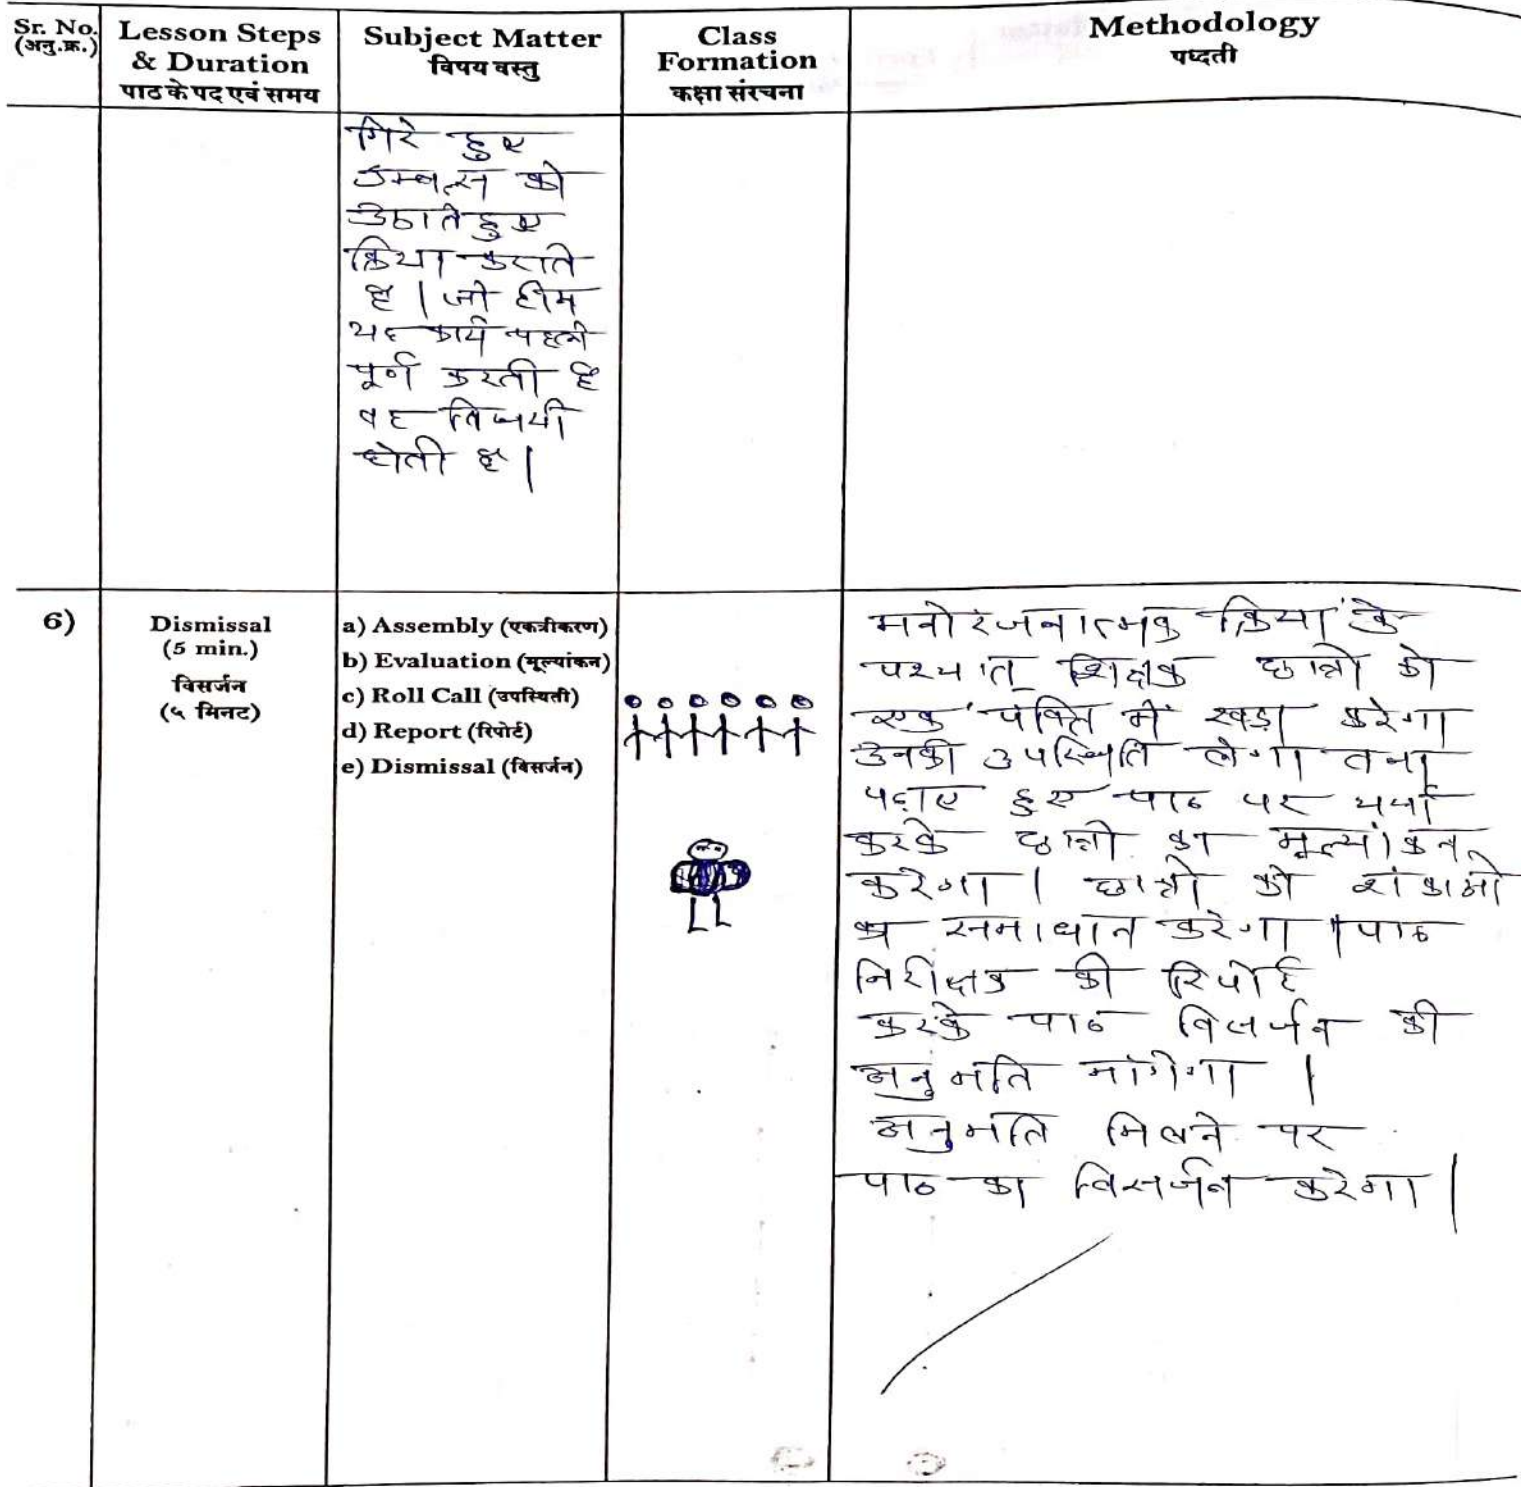 Sr. No.
(अनु.क्र.)
Lesson Steps
& Duration
पाठ के पद एवं समय
Subject Matter
विषय वस्तु
Class
Formation
कक्षा संरचना
Methodology
पध्दती
गिरे हुए
डम्बल्स को
उठाते हुए
क्रिया कराते
है | जो टीम
यह कार्य पहले
पूर्ण करती है
वह विजयी
होती है |
6)
Dismissal
(5 min.)
विसर्जन
(५ मिनट)
a) Assembly (एकत्रीकरण)
b) Evaluation (मूल्यांकन)
c) Roll Call (उपस्थिती)
d) Report (रिपोर्ट)
e) Dismissal (विसर्जन)
मनोरंजनात्मक क्रिया के
पश्चात् शिक्षक छात्रो को
एक पंक्ति में खड़ा करेगा
उनकी उपस्थिति लेगा तथा
पढ़ाए हुए पाठ पर चर्चा
करके छात्रो का मूल्यांकन
करेगा | छात्रो की शंकाओ
का समाधान करेगा | पाठ
निरीक्षक की रिपोर्ट
करके पाठ विसर्जन की
अनुमति मांगेगा |
अनुमति मिलने पर
पाठ का विसर्जन करेगा |